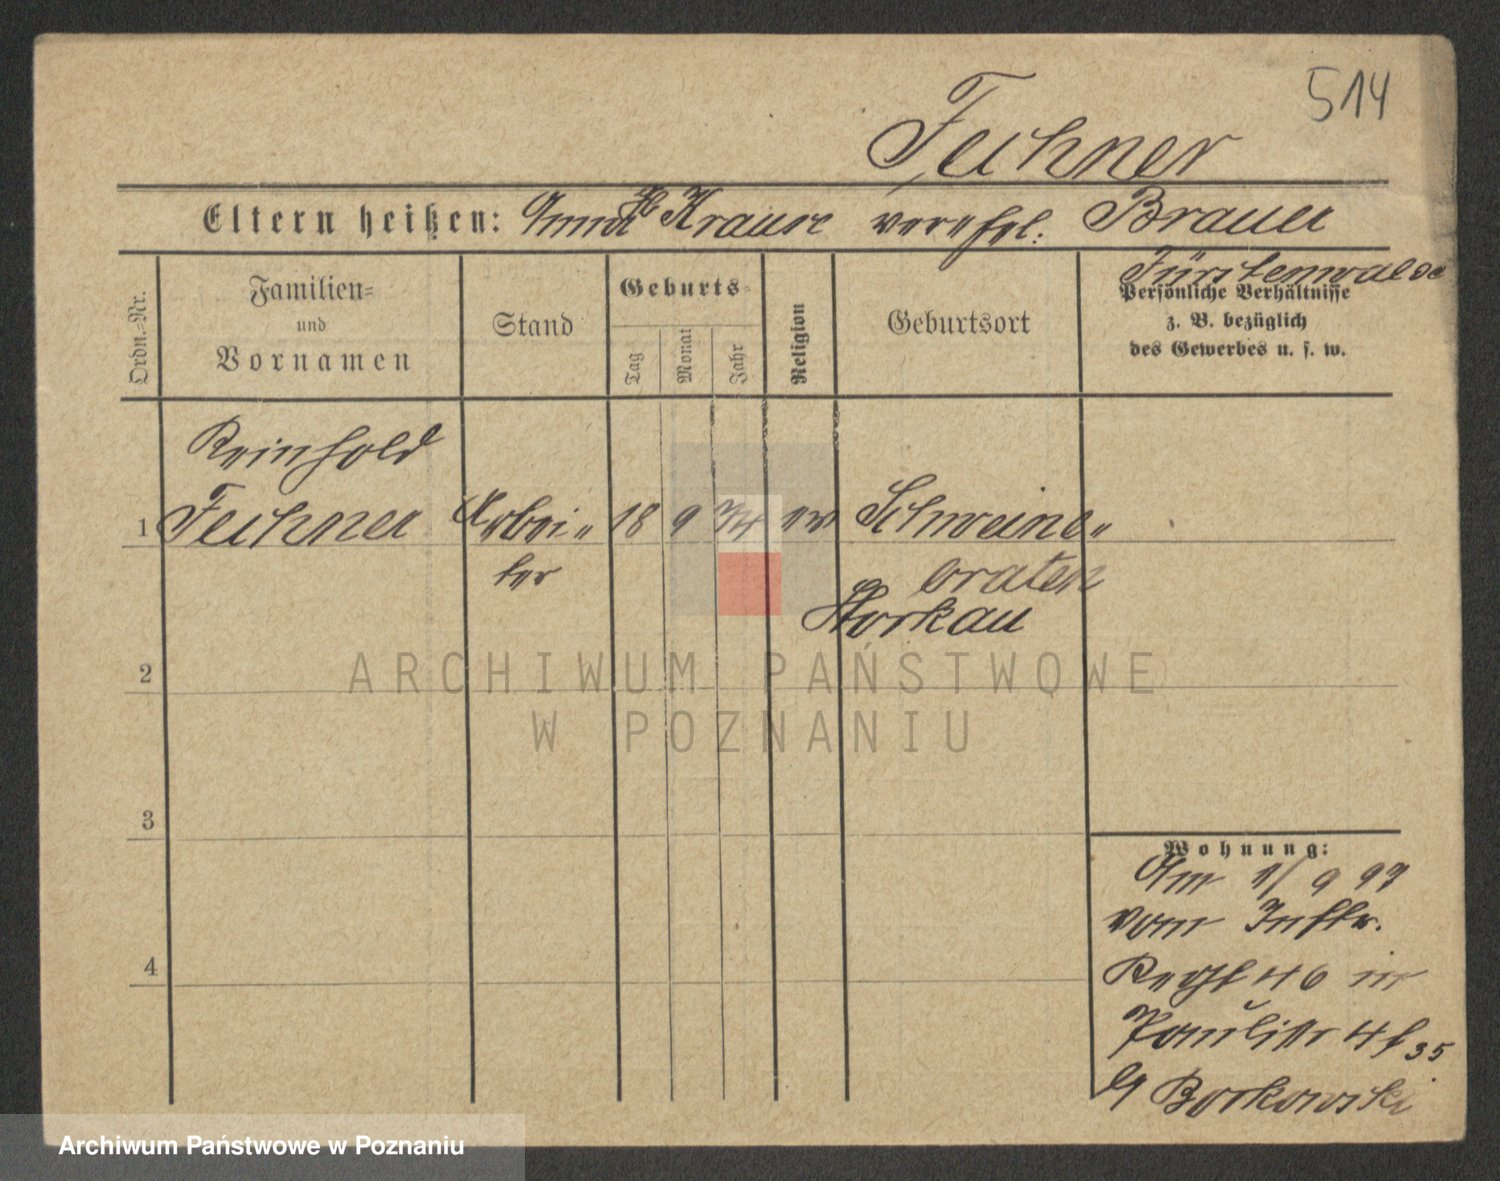 514
Fechner
Eltern heißen: Anna Krause verehel. Brauer
Fürstenwalde
Ordn.-Nr.
Familien-
und
Vornamen
Stand
Geburts-
Tag
Monat
Jahr
Religion
Geburtsort
Persönliche Verhältnisse
z. B. bezüglich
des Gewerbes u. s. w.
Reinhold
1 Fechner Arbei- 18 9 74 ev Schweine-
ter braten
Storkau
2
3
4
Wohnung:
Am 1/9 97
vom Inftr.
Regt 46 in
Paulistr 4 35
Borkowski
ARCHIWUM PAŃSTWOWE
W POZNANIU
Archiwum Państwowe w Poznaniu